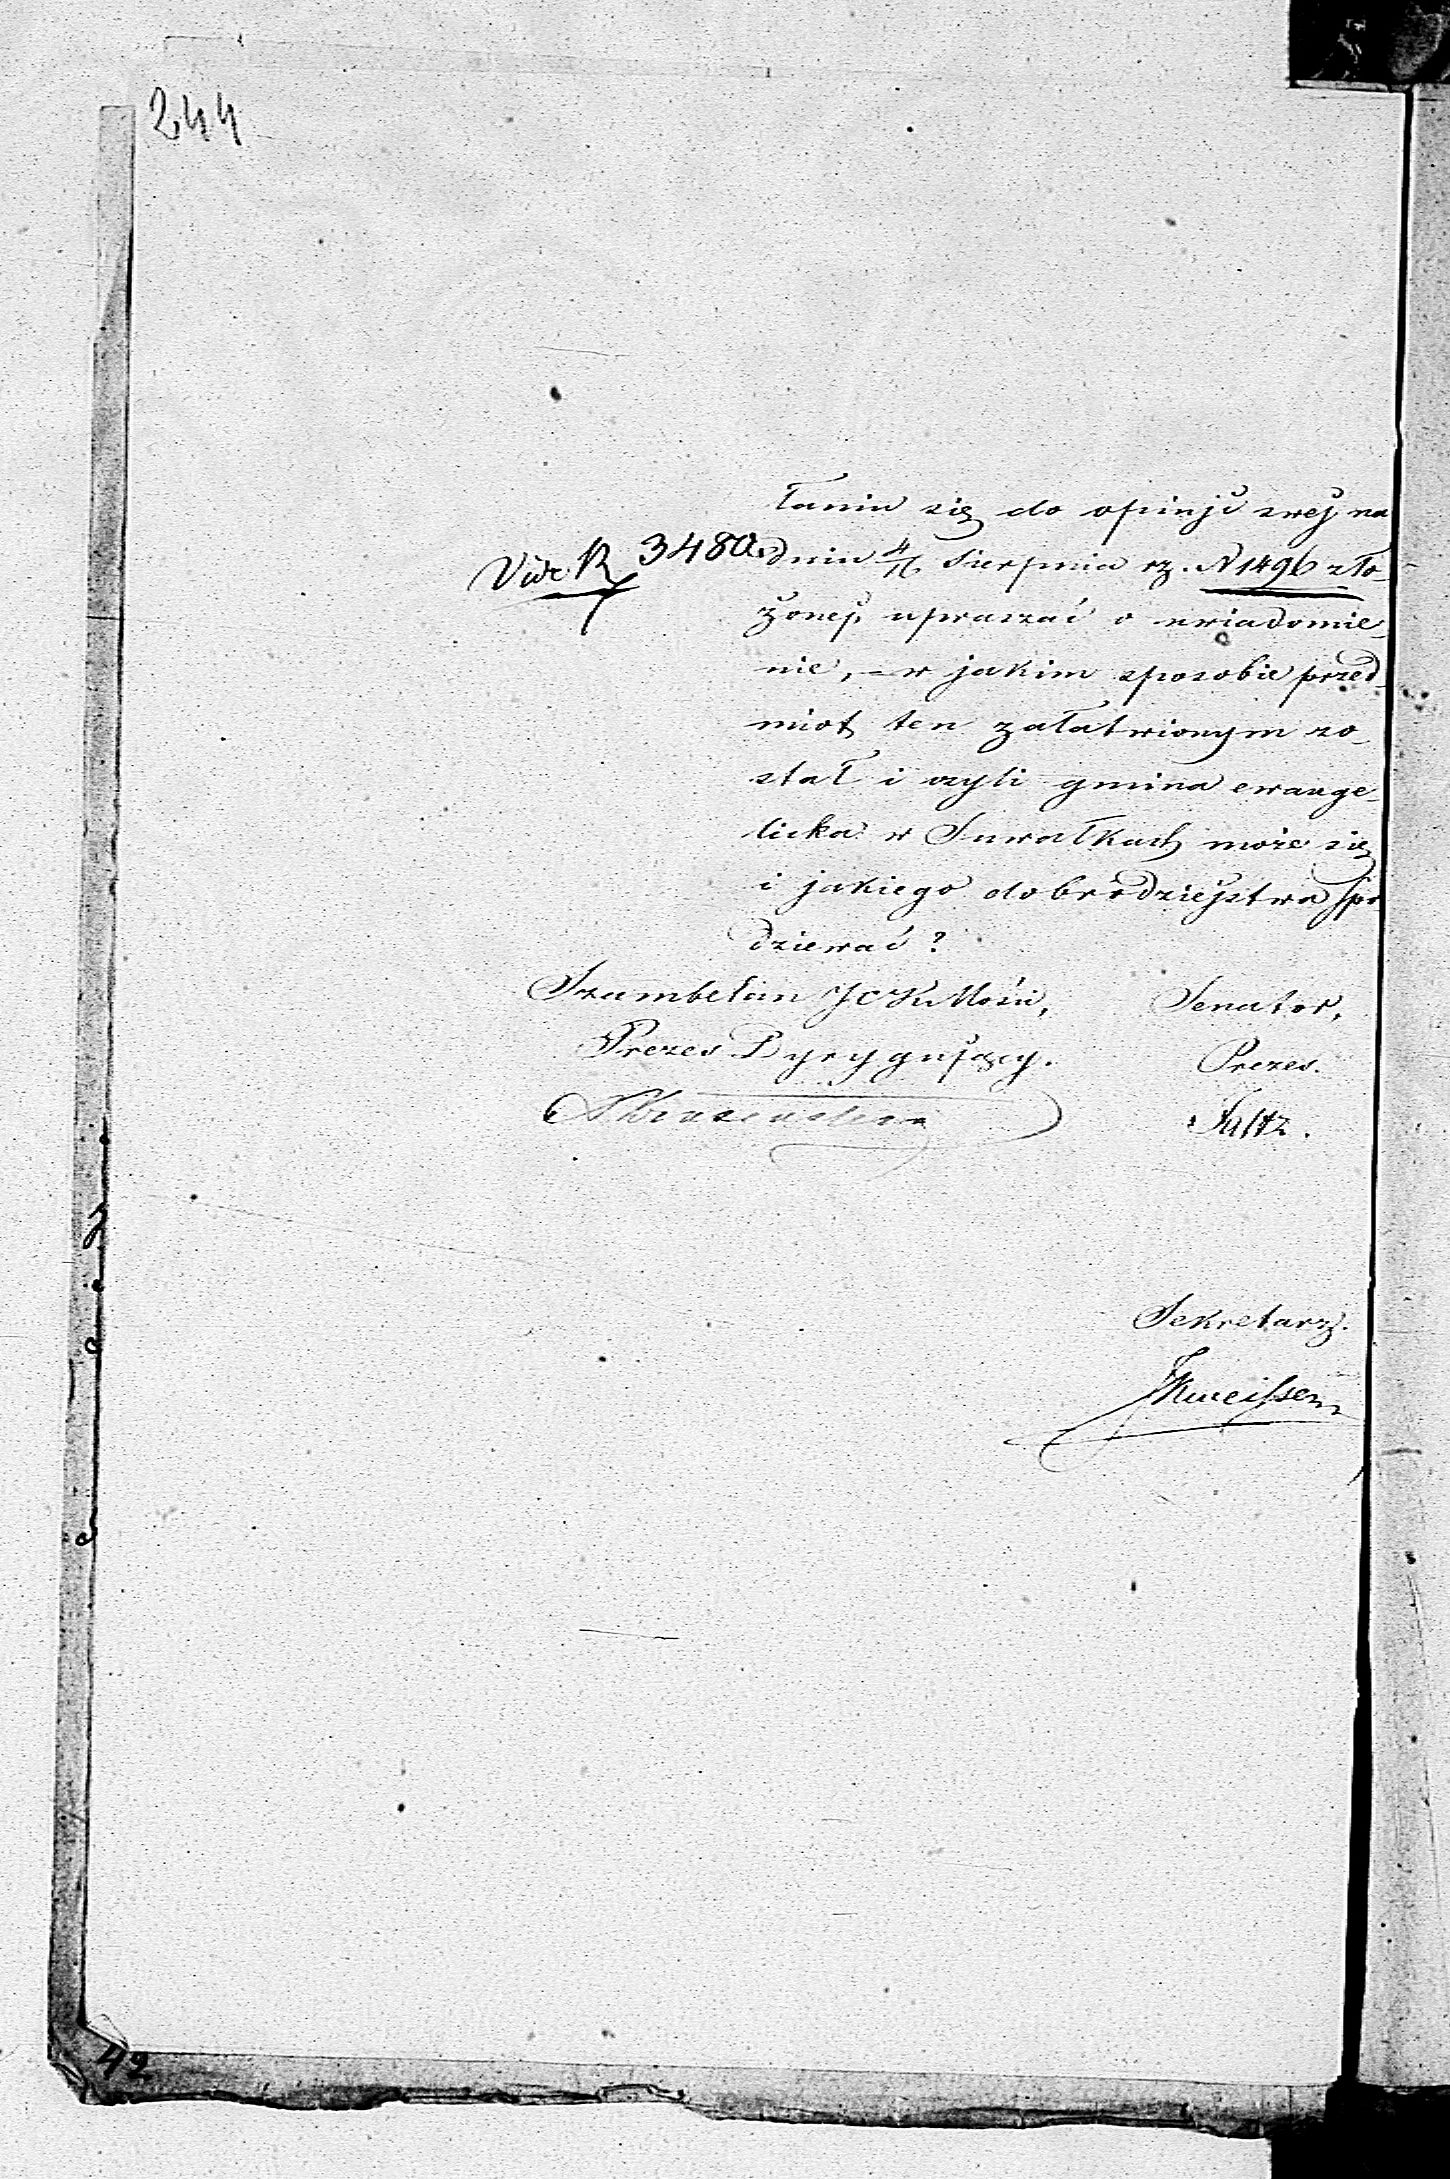 244
łaniu się do opinji swej na
Vide R 3480. dniu 4/16 Sierpnia rz. N 1496 zło-
żonej, upraszać o uwiadomie-
nie, – w jakim sposobie przed-
miot ten załatwionym zo-
stał i czyli gmina ewange-
licka w Suwałkach może się
i jakiego dobrodziejstwa spo
dziewać?
Szambelan JCK Mości, Senator,
Prezes Dyrygujący. Prezes.
Sekretarz.
42